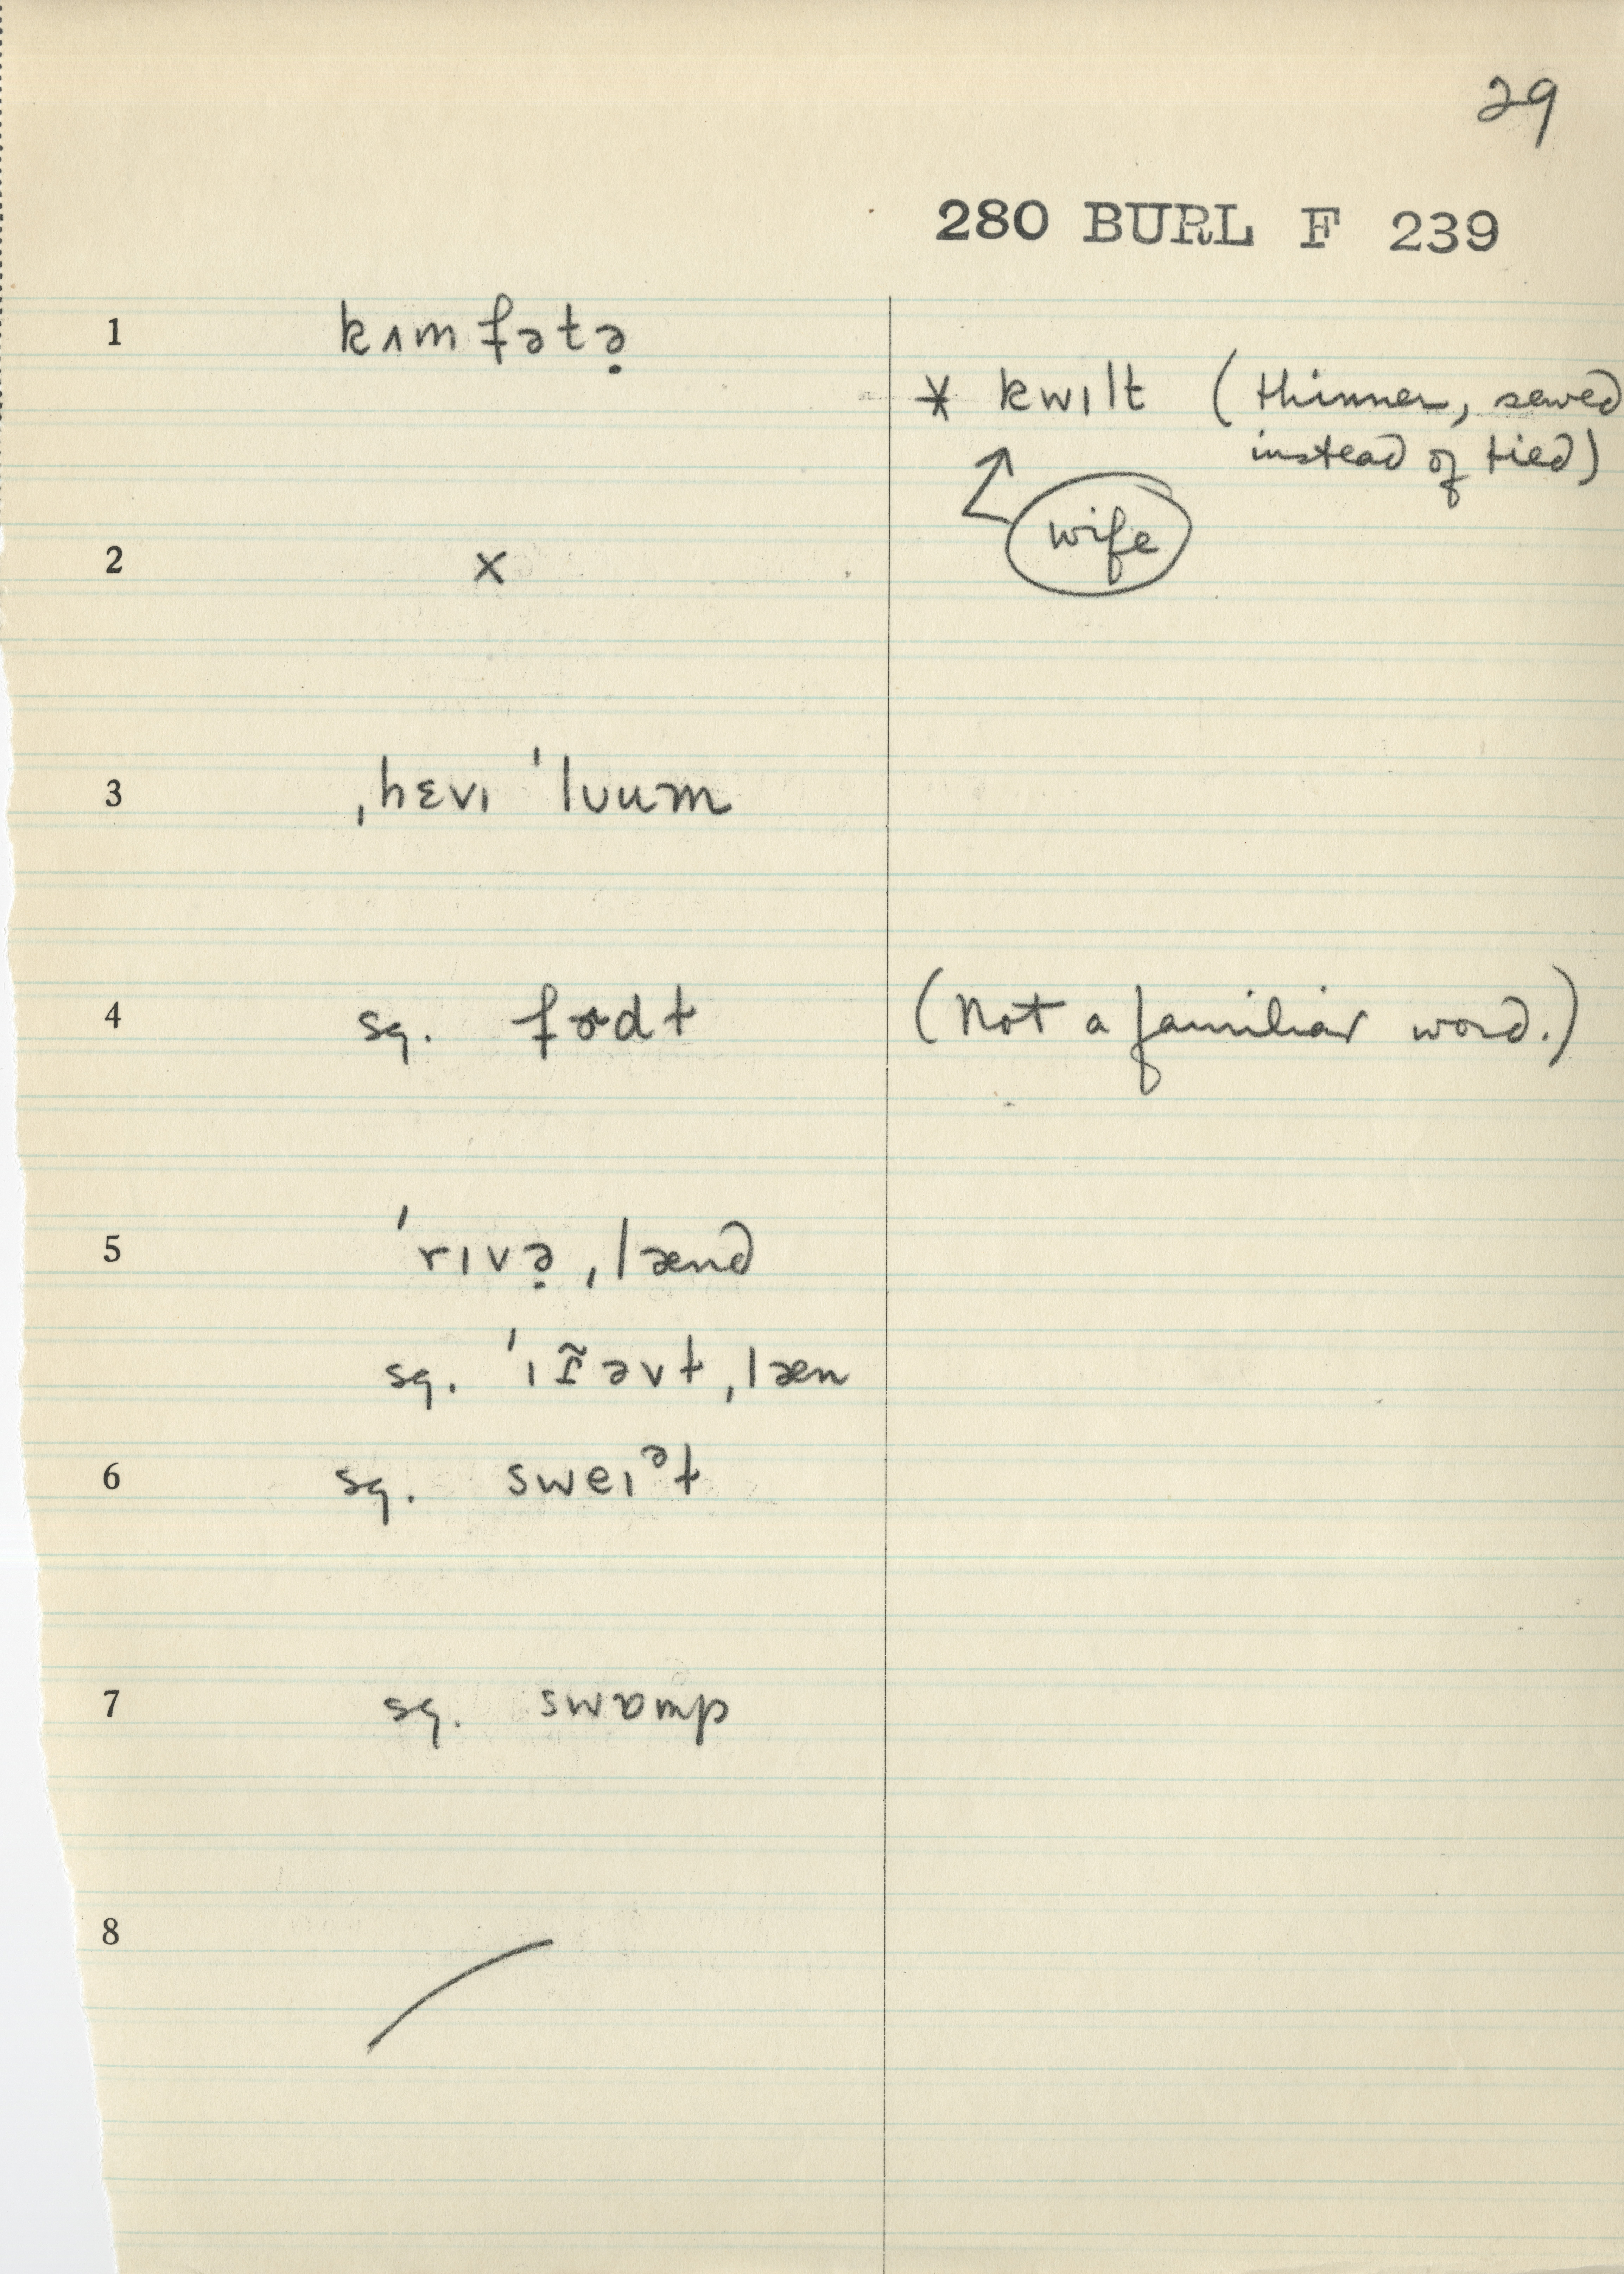 29
280 BURL F 239
1 kʌmfətə̣
* kwɪlt (thinner, sewed
instead of tied)
wife
2 x
3 ˌhɛvɪ ˈlʊum
4 sq. (Not a familiar word.)
5 ˈrɪvə̣ ˌlænd
sq. ˌlæn
6 sq. sweɪᵊt
7 sq. swɒmp
8